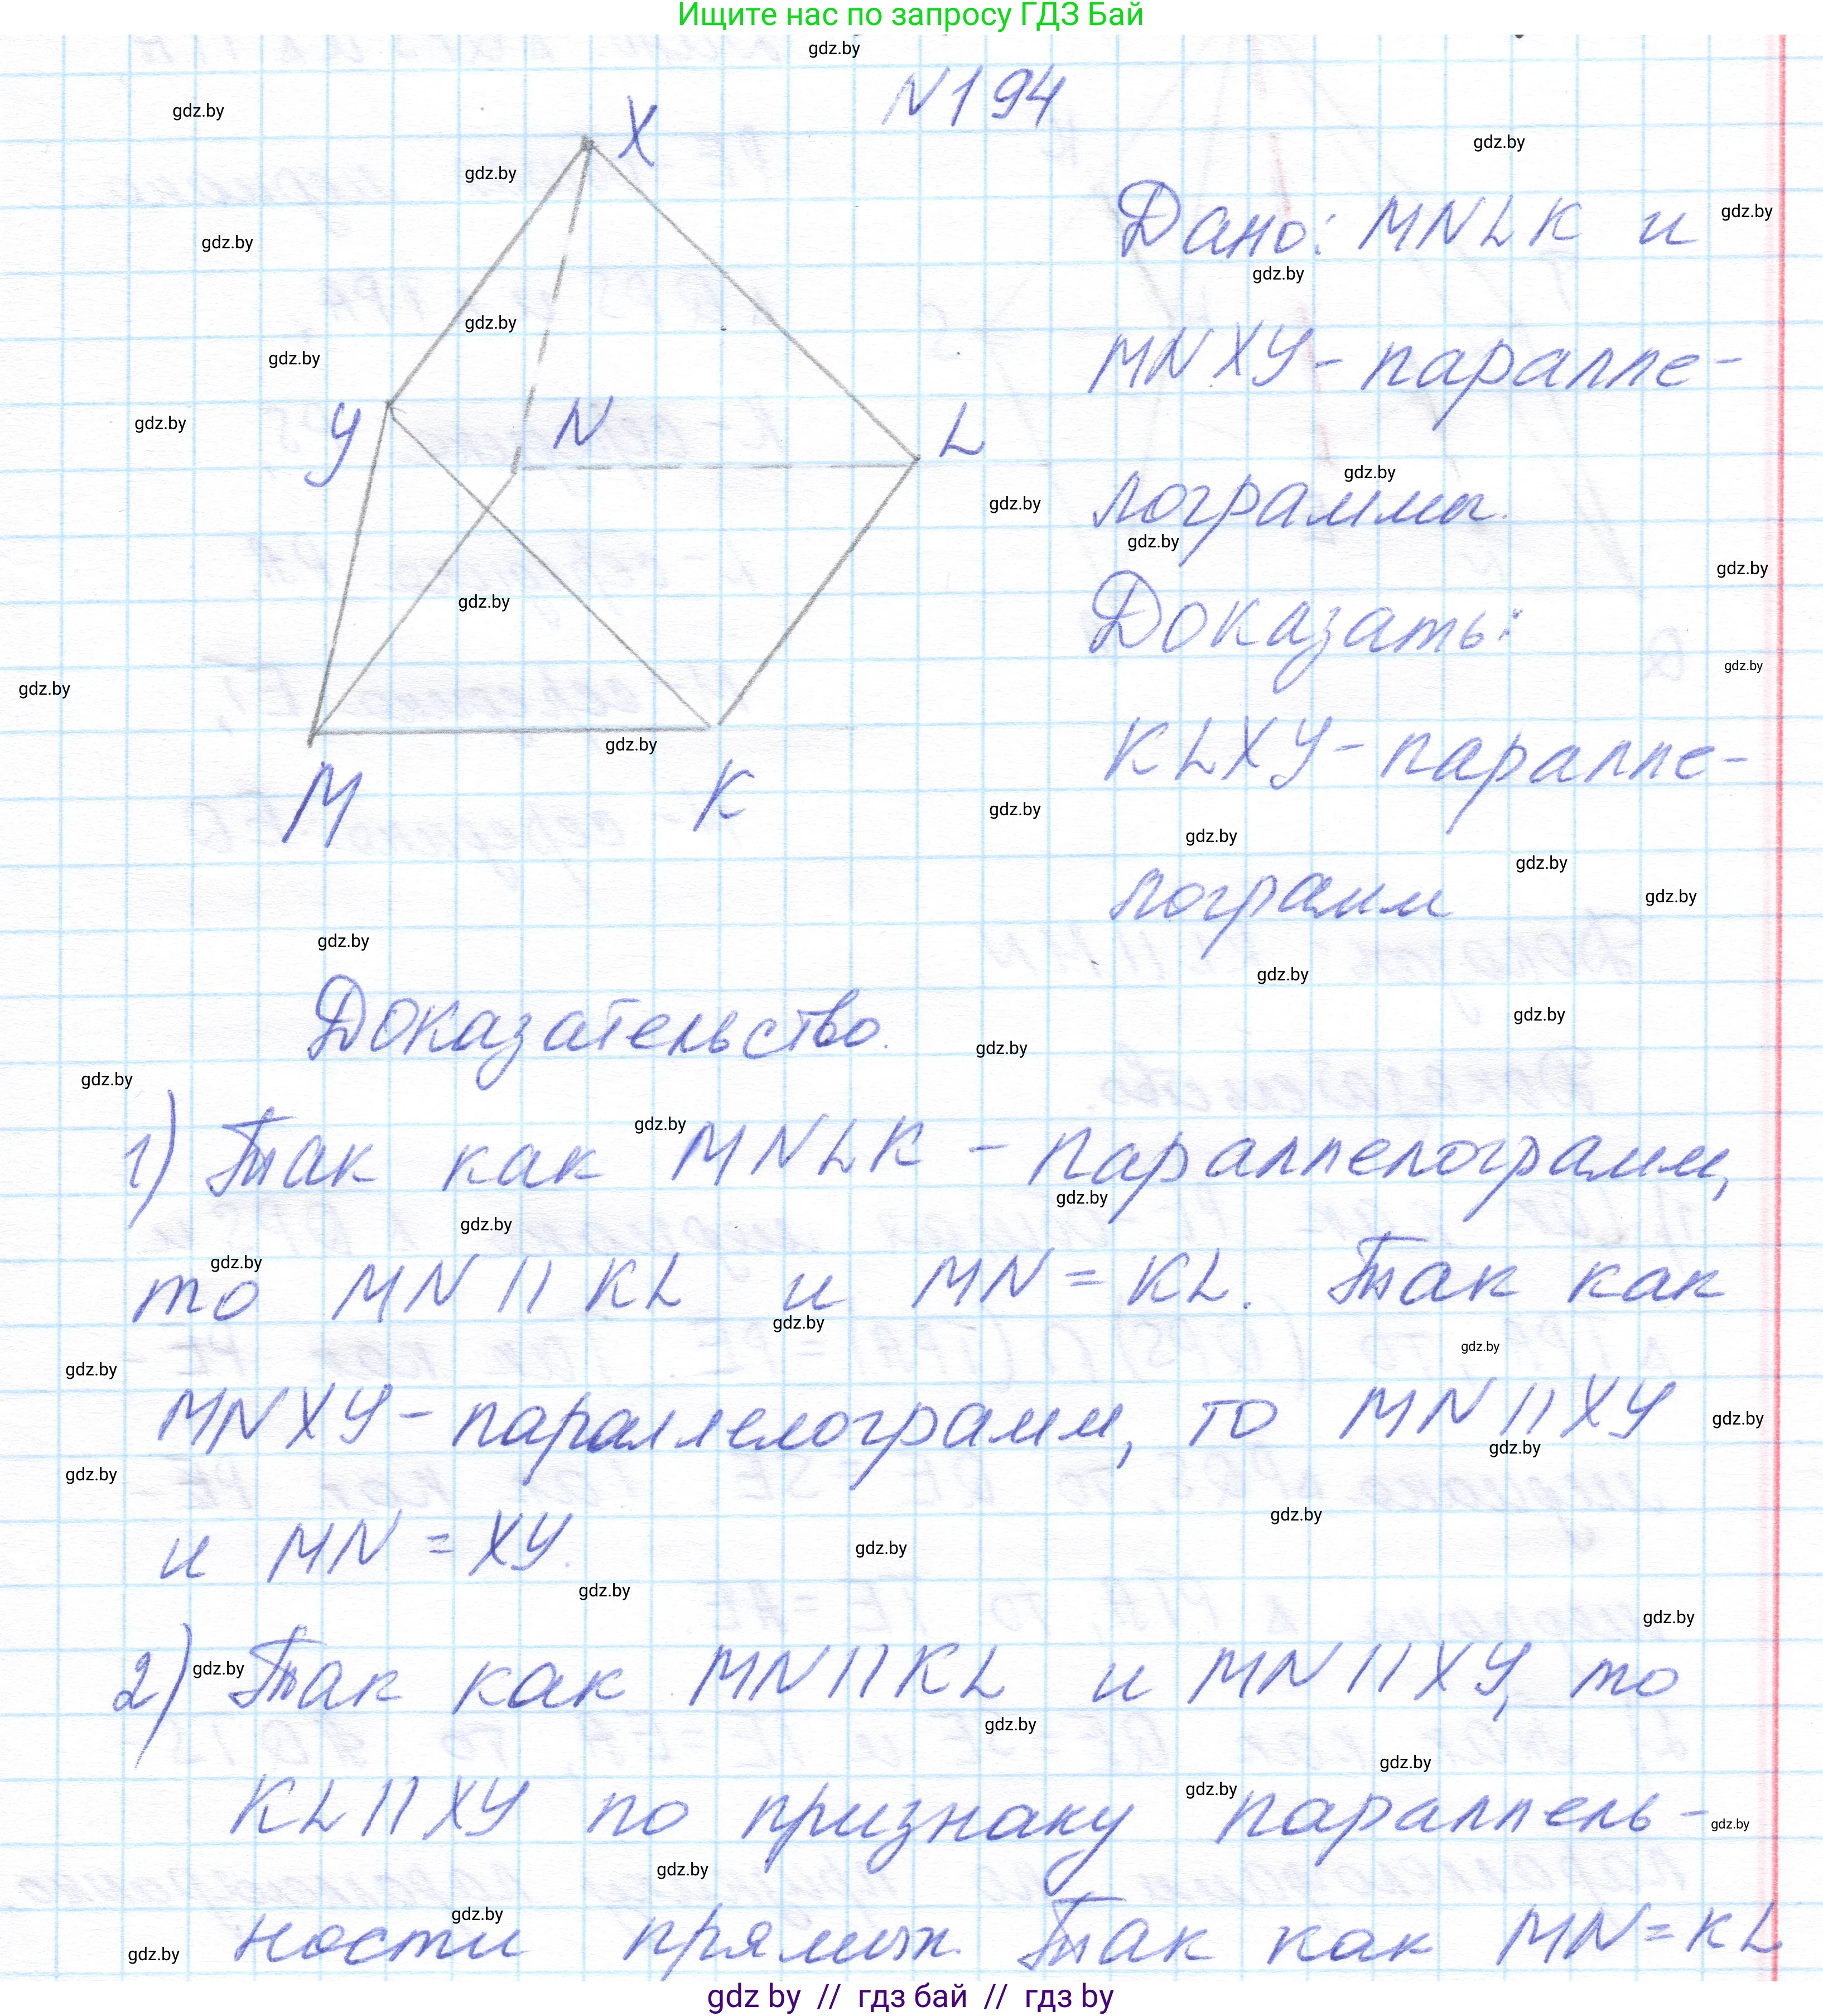 Ищите нас по запросу ГДЗ Бай
N194
X
Y
N
L
M
K
Дано: MNLK и
MNXY - паралле-
лограммы.
Доказать:
KLXY - паралле-
лограмм
Доказательство.
1) Так как MNLK - параллелограмм,
то MN || KL и MN = KL. Так как
MNXY - параллелограмм, то MN || XY
и MN = XY.
2) Так как MN || KL и MN || XY, то
KL || XY по признаку параллель-
ности прямых. Так как MN = KL
gdz by // гдз бай // гдз by